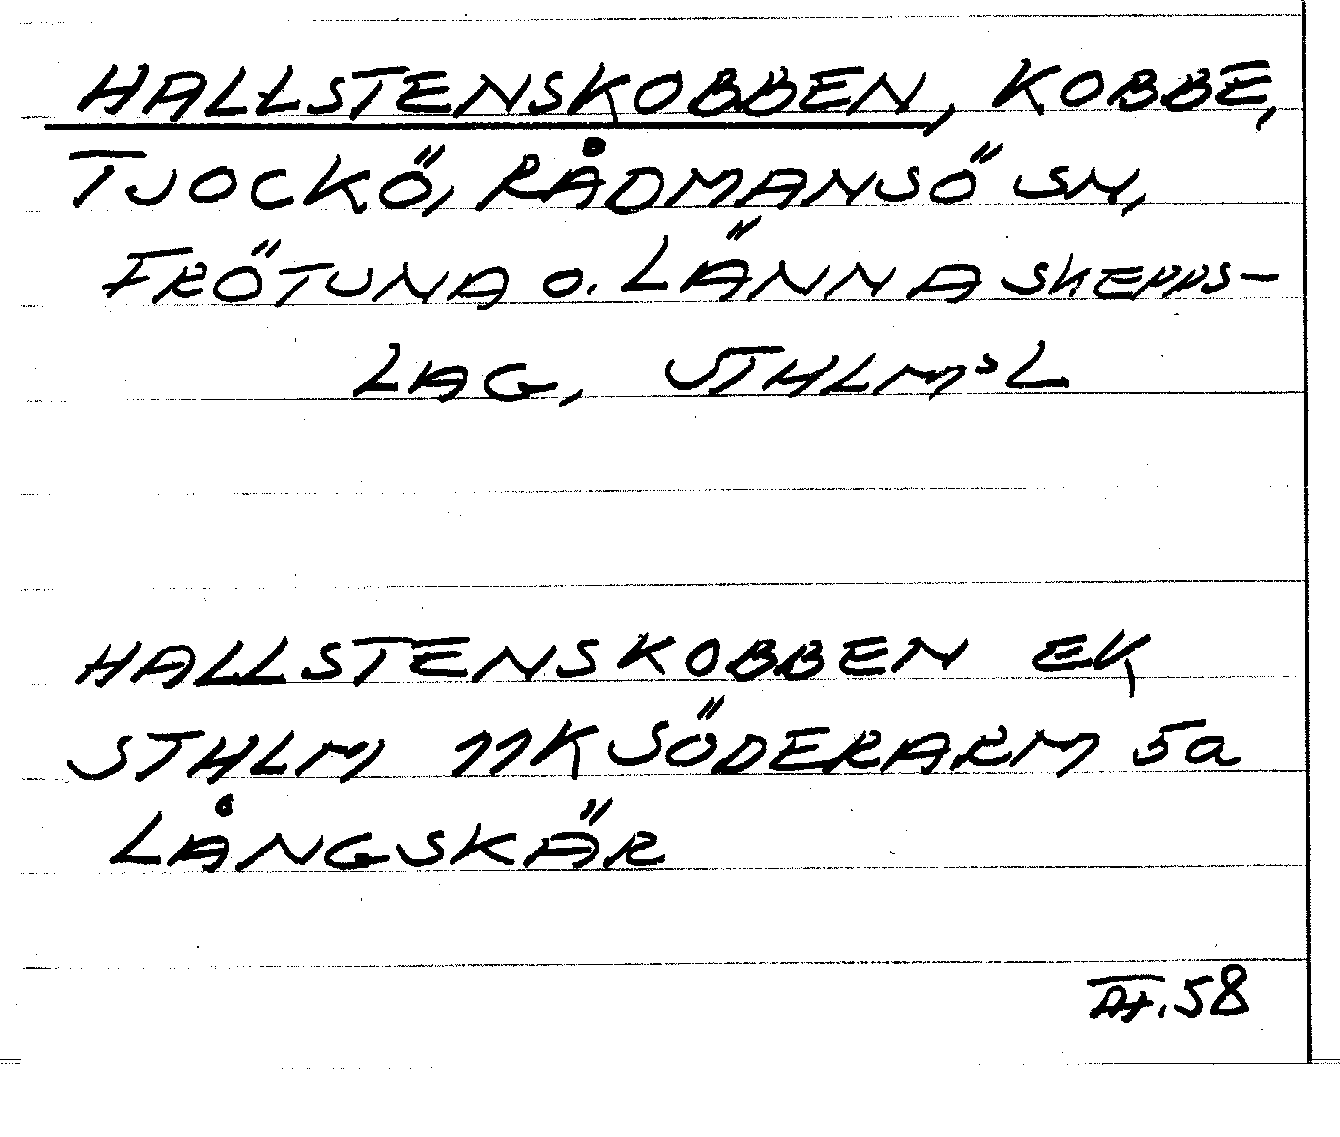 HALLSTENSKOBBEN, KOBBE,
TJOCKÖ, RÅDMANSÖ SN,
FRÖTUNA O. LÄNNA SKEPPS-
LAG, STHLMS L
HALLSTENSKOBBEN EK
STHLM 11K SÖDERARM 5a
LÅNGSKÄR
58